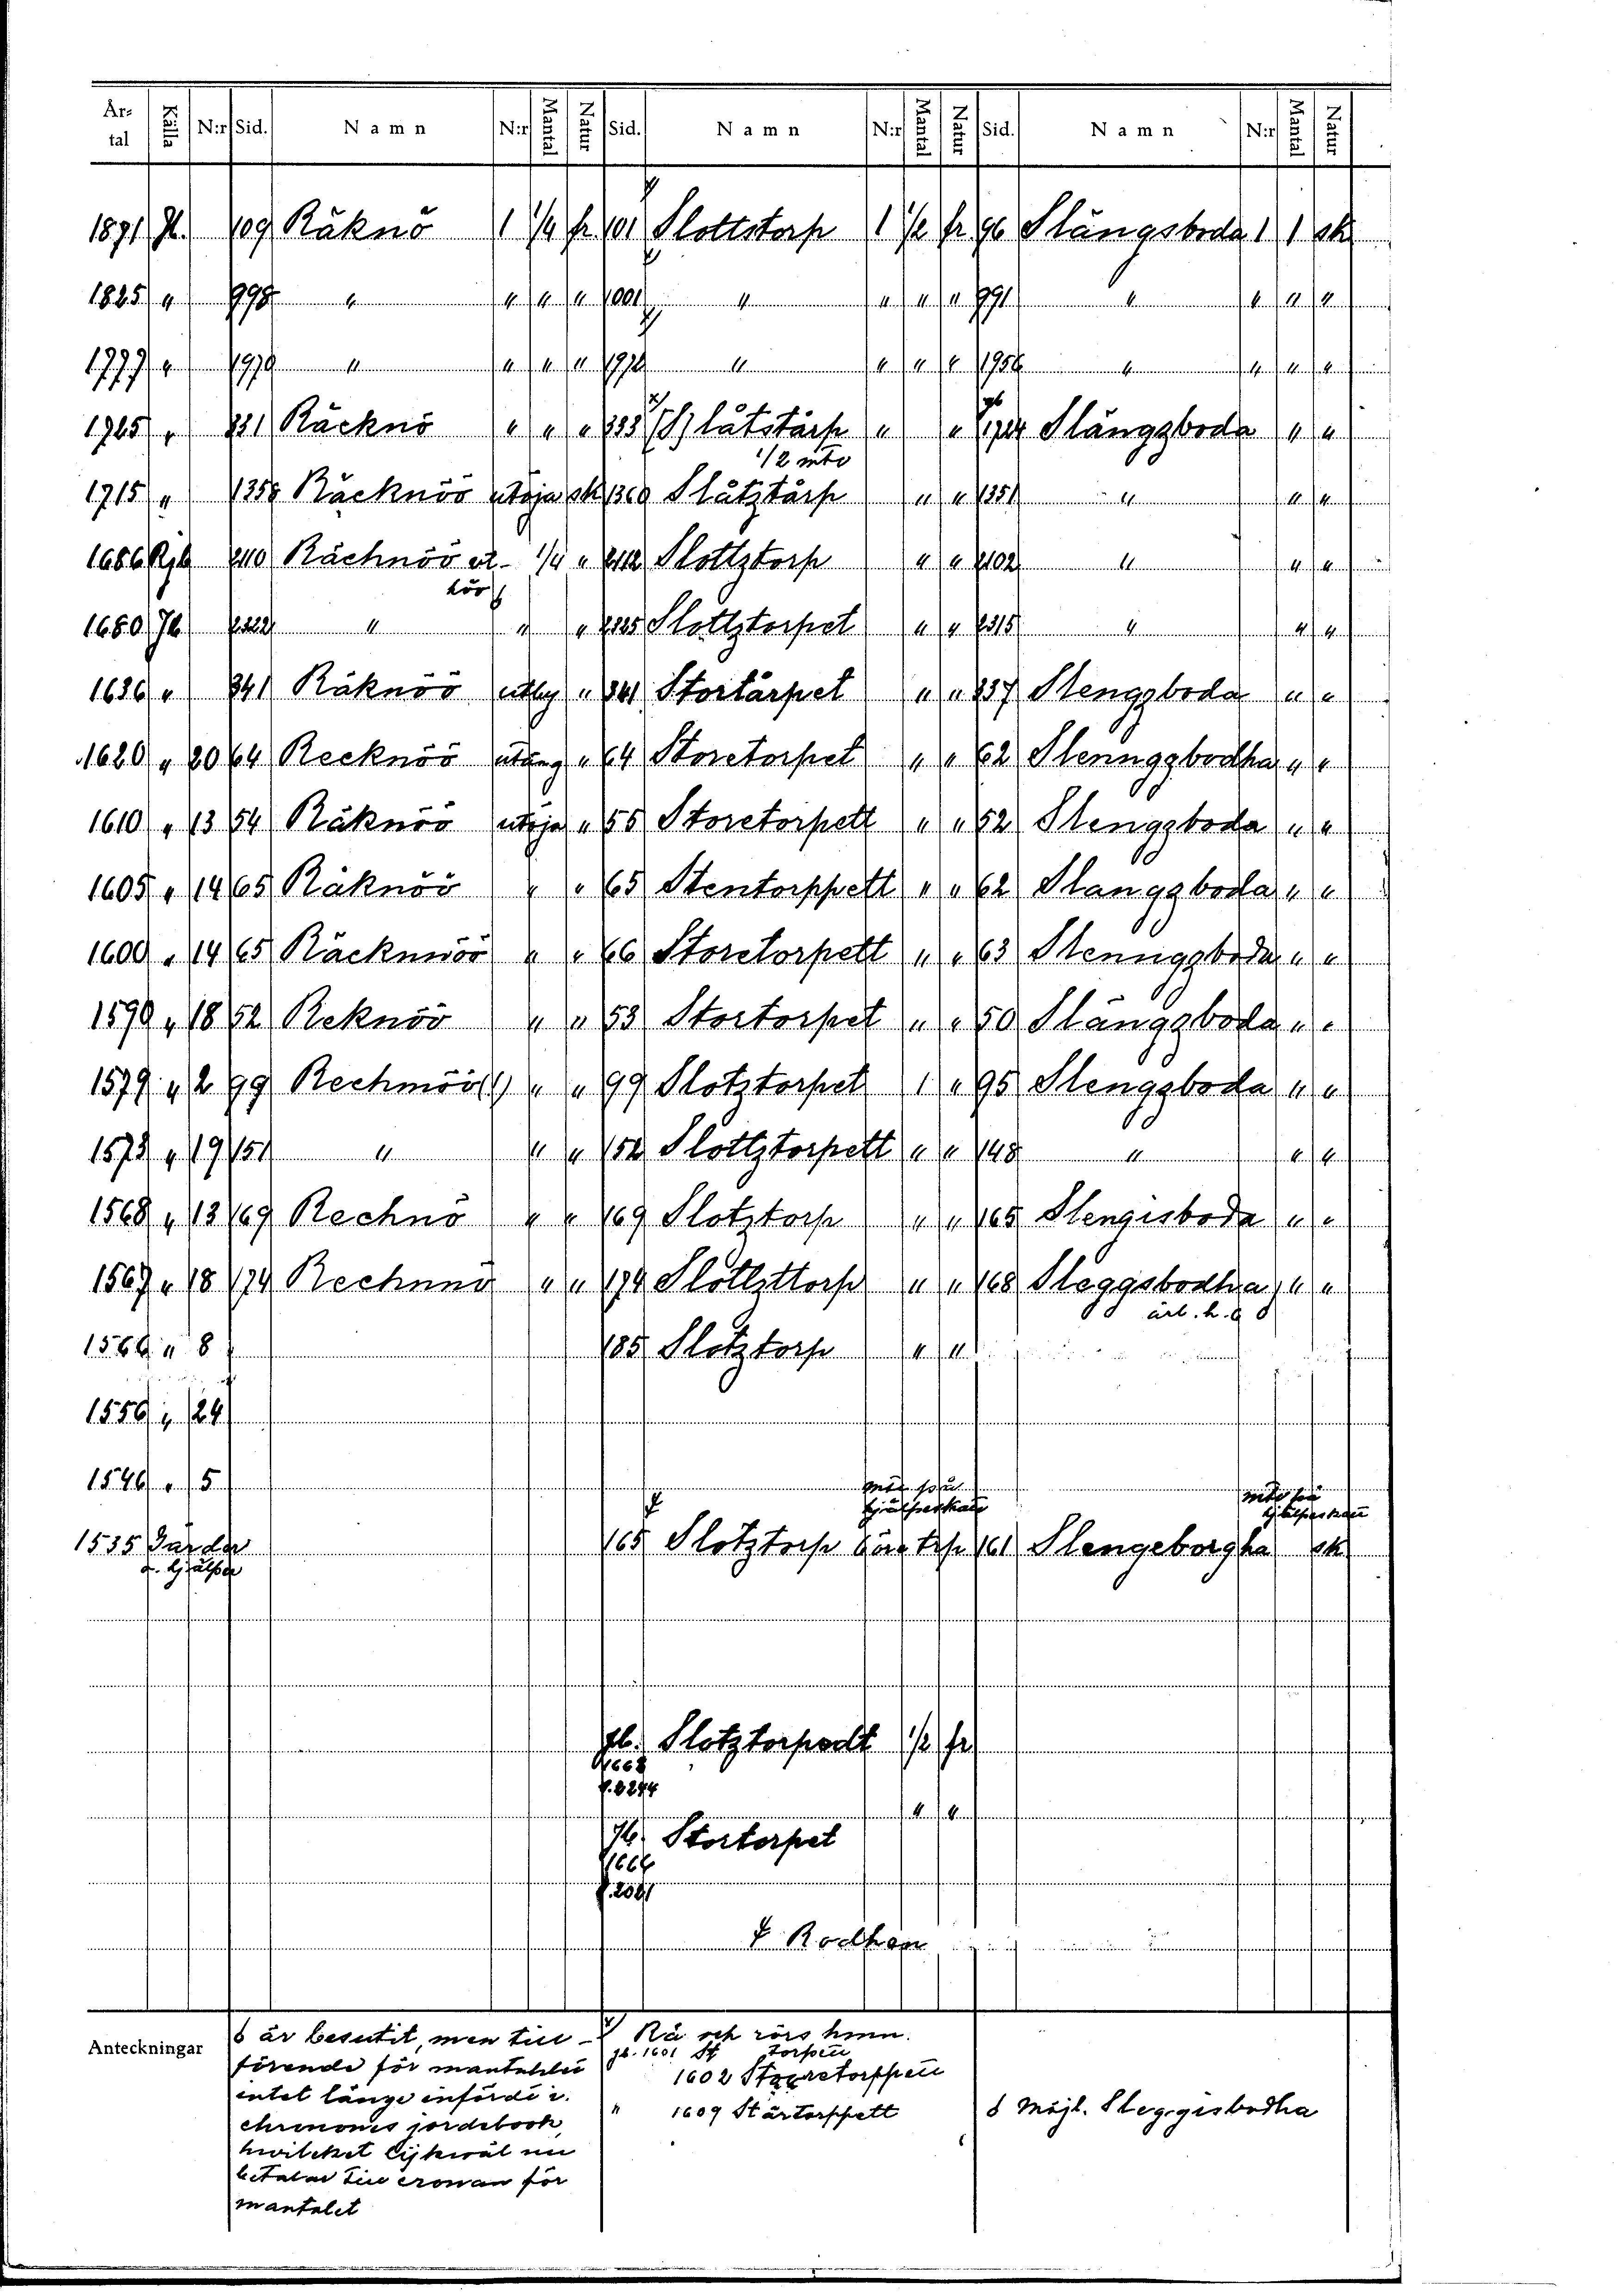 År-tal Källa N:r Sid. Namn N:r Mantal Natur Sid. Namn N:r Mantal Natur Sid. Namn N:r Mantal Natur
1891 Jb. 109 Räknö 1 1/4 fr 101 Slottstorp 1 1/2 fr 96 Slängsboda 1 1 sk
1825 " 998 " " " " 1001 " " " " 991 " " " "
1777 " 1970 " " " " 1972 " " " " 1956 " " " "
1725 " 331 Räcknö " " " 335 (S)låtstårp " " 1724 Slängzboda " "
1/2 mtl
1715 " 1358 Räcknöö utöja sk 1360 Slåtztårp " " 1351 " " "
1686 Rjb 2110 Rächnöö ut- 1/4 " 2112 Slottztorp " " 2102 " " "
hör
1680 Jb 2322 " " " 2325 Slottztorpet " " 2315 " " "
1636 " 341 Räknöö utby " 341 Stortårpet " " 337 Slengzboda " "
1620 " 20 64 Recknöö utäng " 64 Storetorpet " " 62 Slenngzbodha " "
1610 " 13 54 Räknöö utöja " 55 Storetorpett " " 52 Slengzboda " "
1605 " 14 65 Räknöö " " 65 Stentorppett " " 62 Slangzboda " "
1600 " 14 65 Räcknnöö " " 66 Storetorpett " " 63 Slenngzboda " "
1590 " 18 52 Reknöö " " 53 Stortorpet " " 50 Slängzboda " "
1579 " 2 99 Rechmöö(!) " " 99 Slotztorpet 1 " 95 Slengzboda " "
1573 " 19 151 " " " 152 Slottztorpett " " 148 " " "
1568 " 13 169 Rechnö " " 169 Slotztorp " " 165 Slengisboda " "
1567 " 18 174 Rechnnö " " 174 Slottzttorp " " 168 Sleggsbodha " "
1566 " 8 185 Slotztorp " "
1556 " 24
1546 " 5
1535 Gärder 165 Slotztorp 161 Slengeborgha sk
o. hjälper
Jb. Slotztorpedt 1/2 fr
1668
" "
Jb. Stortorpet
1666
Rodhen
Anteckningar
är besutit, men till-
förende för mantahlei
intet länge infördt i
chronones jordebook,
hwilcket lijkwäl nu
betalar till cronan för
mantalet
Rå och rörs hmn.
jb. 1601 St torpett
1602 Storretorppett
" 1609 Stårtorppett
Möjl. Sleggisbodha